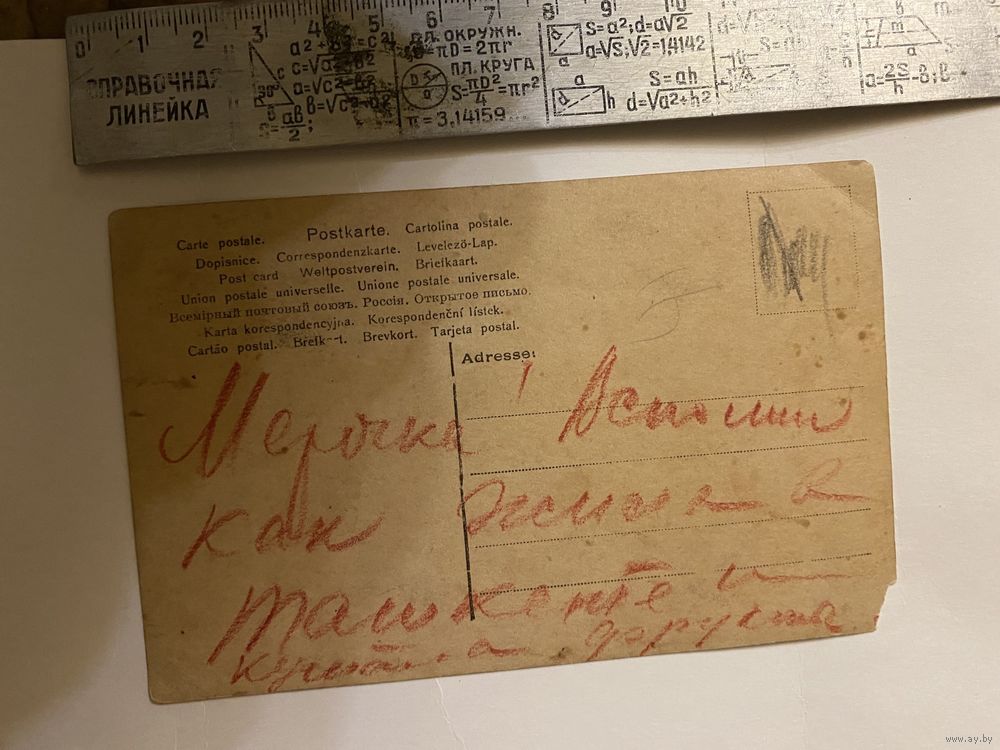 0 1 2 3 4 5 6 7 8 9 10
СПРАВОЧНАЯ
ЛИНЕЙКА
a²+b²=c²
c=√a²+b²
a=√c²-b²
b=√c²-a²
S=ab/2;
ДЛ. ОКРУЖН.
=πD=2πr
ПЛ. КРУГА
S=πD²/4=πr²
π=3,14159...
S=a²; d=a√2
a=√S; √2=1,4142
S=ah
d=√a²+h²
a=2S/h-b; b=
Carte postale. Postkarte. Cartolina postale.
Dopisnice. Correspondenzkarte. Levelező-Lap.
Post card Weltpostverein. Briefkaart.
Union postale universelle. Unione postale universale.
Всемірный почтовый союзъ. Россія. Открытое письмо.
Karta korespondencyjna. Korespondenční lístek.
Cartão postal. Brefkort. Brevkort. Tarjeta postal.
Adresse:
Мерочка! Вспомни
как жила в
Ташкенте и
кушала фрукта
www.ay.by